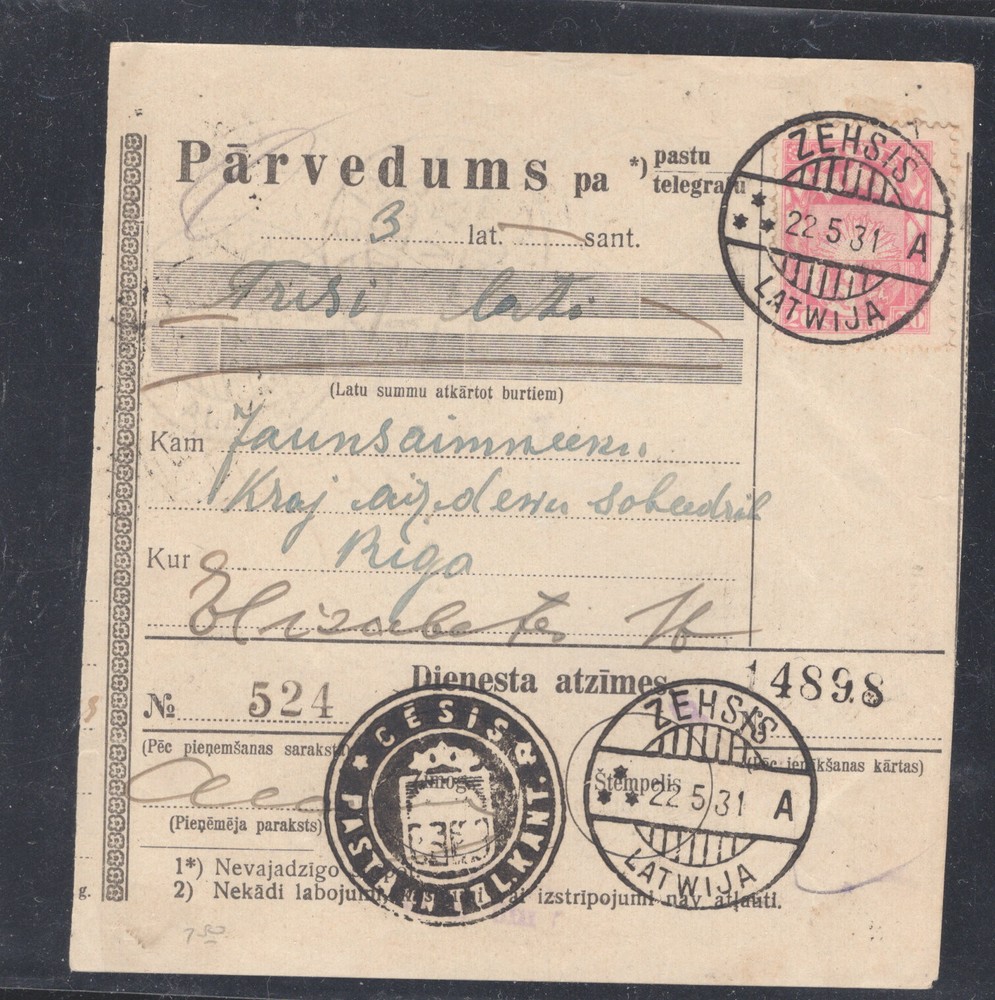 Pārvedums pa *) pastu
telegrafu
ZEHSIS
22 5 31 A
LATWIJA
20 20
3 lat. — sant.
Trisi lati
(Latu summu atkārtot burtiem)
Kam Jaunsaimneeku
Kraj aizdewu sobeedrib
Kur Riga
Elizabetes 16
Dienesta atzīmes
№ 524
14898
(Pēc pieņemšanas saraksta)
(Pēc ienākšanas kārtas)
CĒSIS
PASTA
KANT.
Zīmogs
Štempelis
ZEHSIS
22 5 31 A
LATWIJA
(Pieņēmēja paraksts)
1*) Nevajadzīgo
2) Nekādi labojumi, vai izstrīpojumi nav atļauti.
g.
7 50